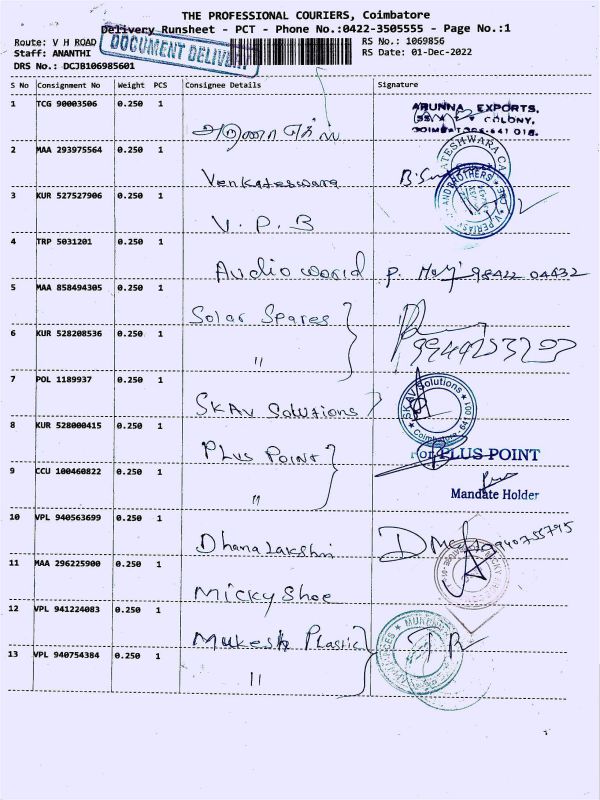 THE PROFESSIONAL COURIERS, Coimbatore
Delivery Runsheet - PCT - Phone No.:0422-3505555 - Page No.:1
Route: V H ROAD
DOCUMENT DELIVERY
RS No.: 1069856
Staff: ANANTHI
RS Date: 01-Dec-2022
DRS No.: DCJB106985601
S No Consignment No Weight PCS Consignee Details Signature
1 TCG 90003506 0.250 1
ARUNNA EXPORTS,
COLONY,
அருணா
2 MAA 293975564 0.250 1
Venkateswara
3 KUR 527527906 0.250 1
AND BROTHERS
V. P. B
4 TRP 5031201 0.250 1
Audio world
5 MAA 858494305 0.250 1
Solar Spares
6 KUR 528208536 0.250 1
"
7 POL 1189937 0.250 1
SKAV Solutions
SKAV Solutions
Coimbatore - 641 001
8 KUR 528000415 0.250 1
Plus Point
For PLUS POINT
9 CCU 100460822 0.250 1
"
Mandate Holder
10 VPL 940563699 0.250 1
Dhanalakshmi
11 MAA 296225900 0.250 1
Micky Shoe
12 VPL 941224083 0.250 1
Mukesh Plastic
13 VPL 940754384 0.250 1
"